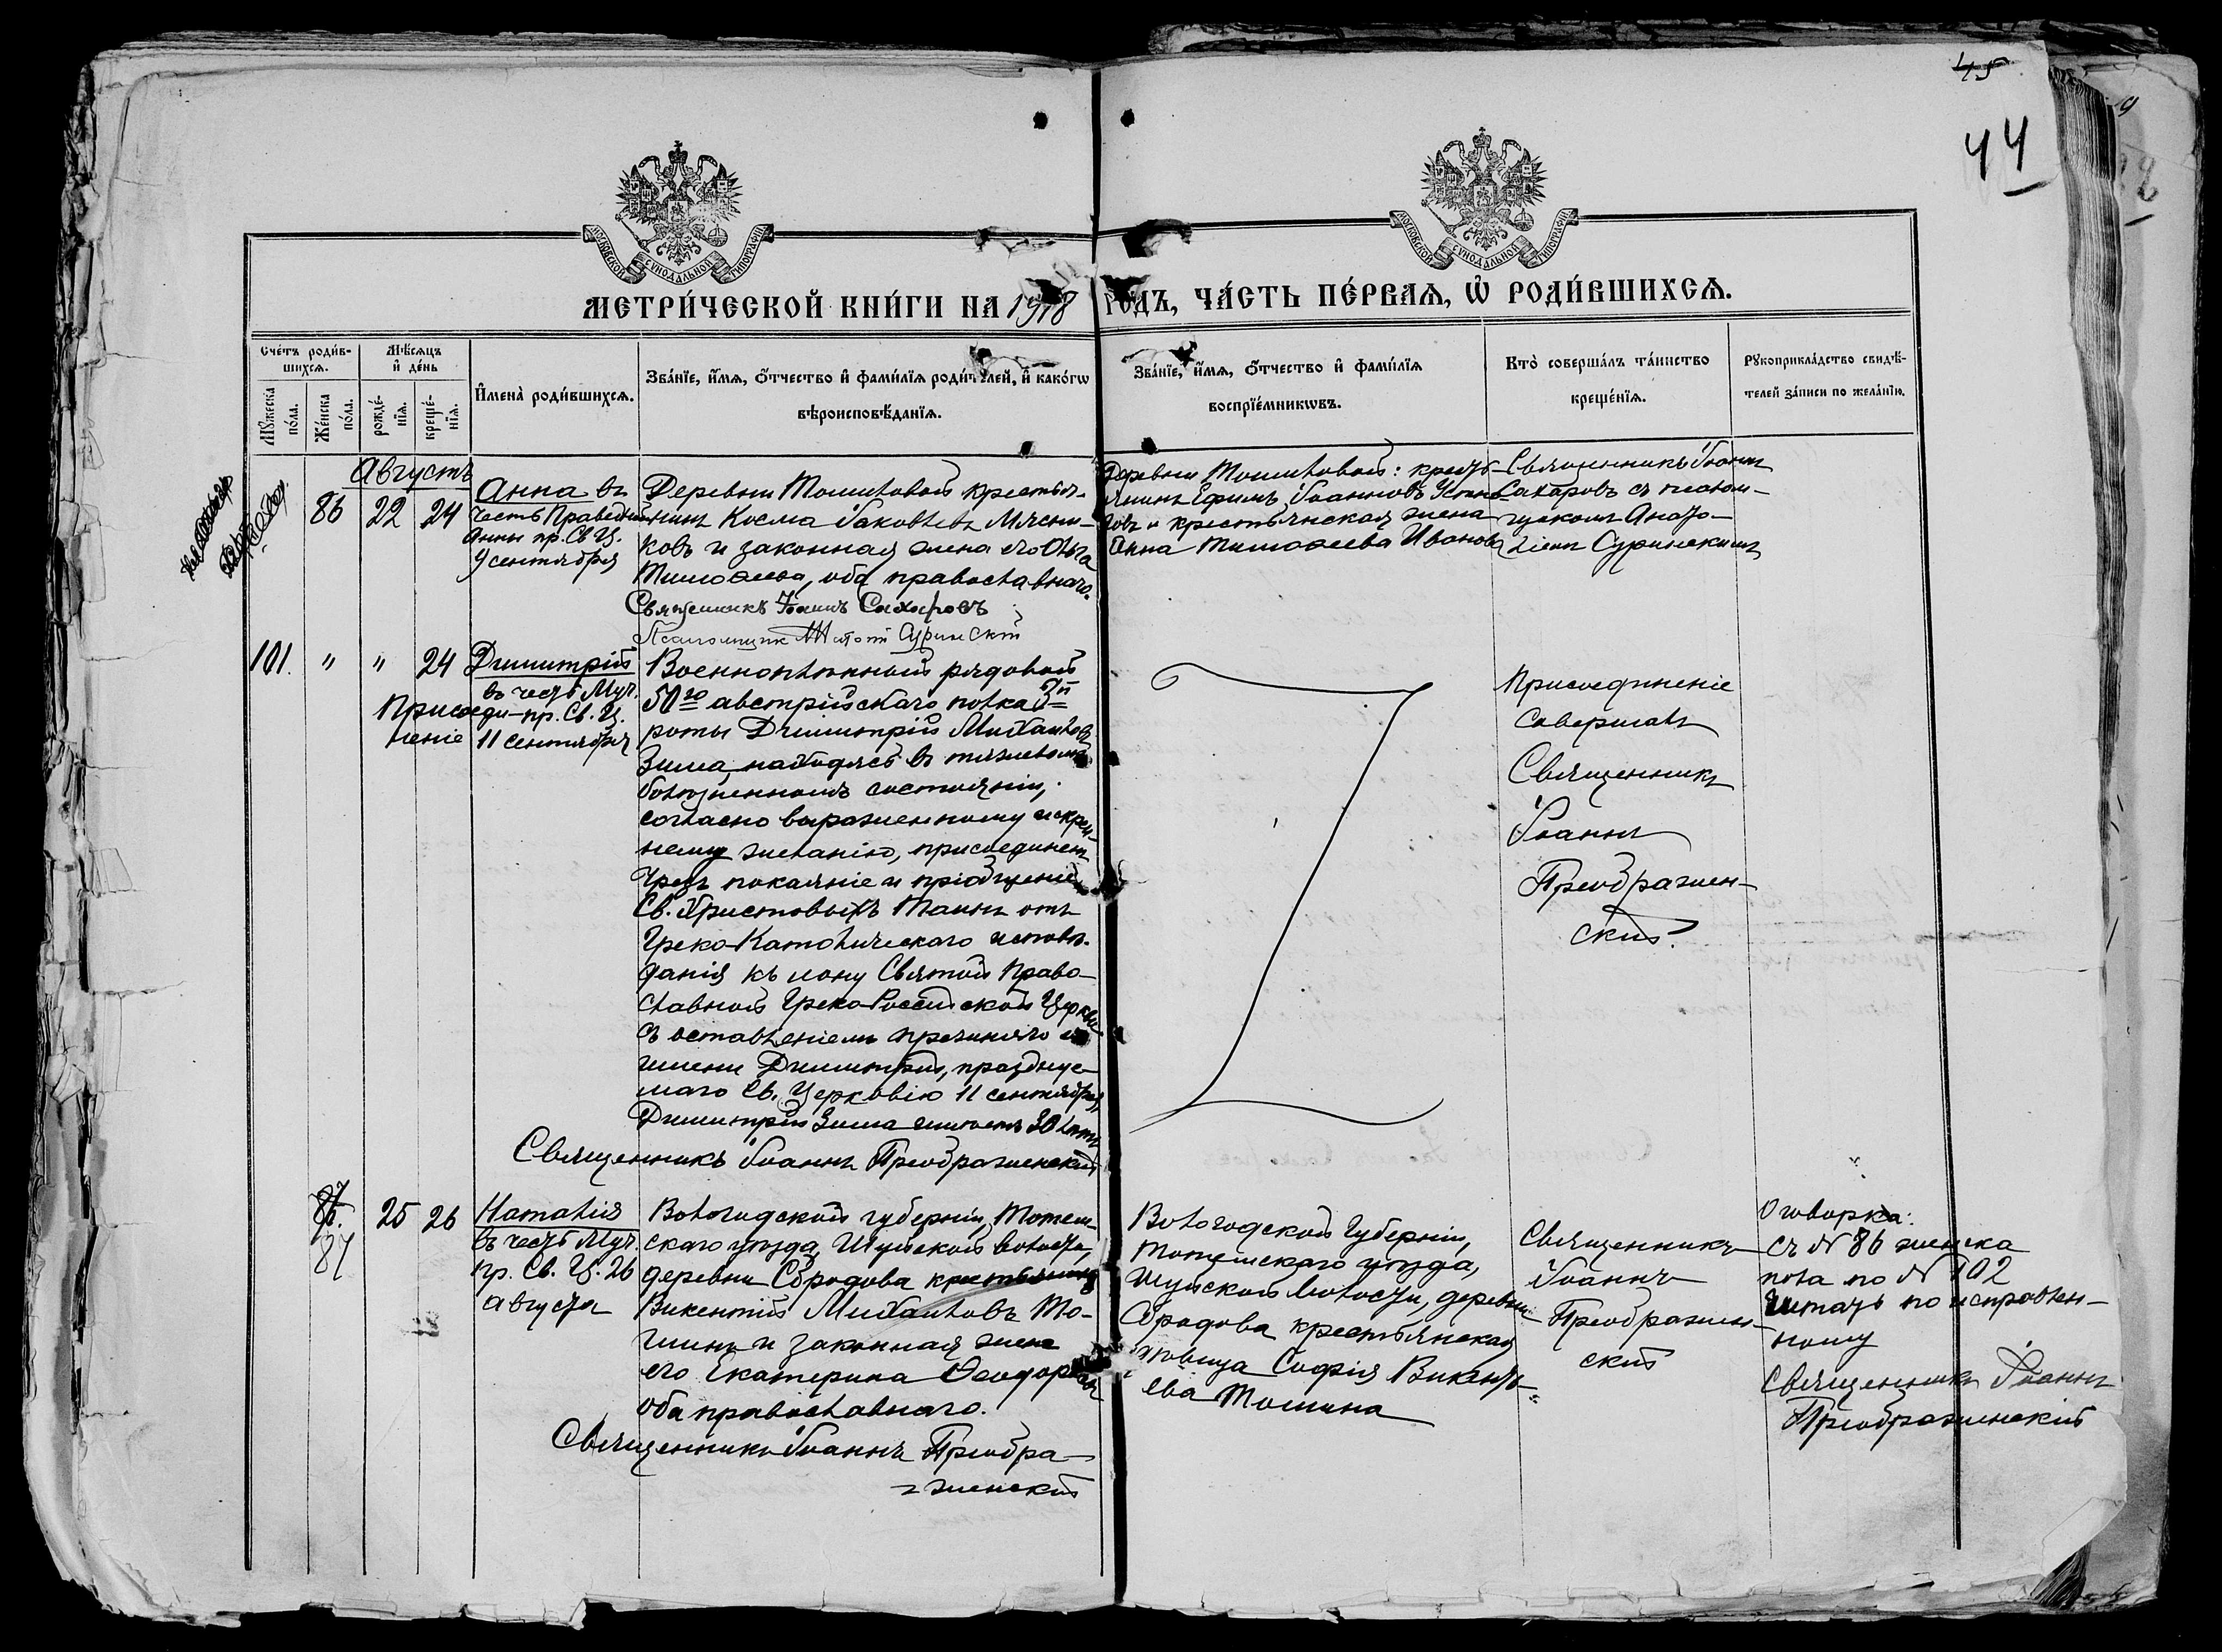 45
44
МОСКОВСКОЙ СУНОДАЛЬНОЙ ТИПОГРАФІИ
МОСКОВСКОЙ СУНОДАЛЬНОЙ ТИПОГРАФІИ
МЕТРИ́ЧЕСКОЙ КНИ́ГИ НА 1918 ГОДЪ, ЧА́СТЬ ПЕ́РВАѦ, Ѽ РОДИ́ВШИХСѦ.
Сче́тъ роди́в-
шихсѧ.
Мꙋжеска по́ла.
Же́нска по́ла.
Мѣ́сѧцъ и҆ де́нь
рожде́-
нїѧ.
креще́-
нїѧ.
И҆мена̀ роди́вшихсѧ.
Зва́нїе, и҆́мѧ, ѻ҆́тчество и҆ фами́лїѧ роди́телей, и҆ како́гѡ
вѣроисповѣ́данїѧ.
Зва́нїе, и҆́мѧ, ѻ҆́тчество и҆ фами́лїѧ
воспрїе́мникѡвъ.
Кто̀ соверша́лъ та́инство
креще́нїѧ.
Рꙋкоприкла́дство свидѣ́-
телей за́писи по жела́нїю.
Августъ
86 22 24
Анна въ
честь Праведной
Анны пр. Св. Ц.
9 сентября
Деревни Тошиковой крестья-
нинъ Косма Іаковлевъ Мясни-
ковъ и законная жена его Ольга
Тимоѳеева, оба православнаго.
Священникъ Іоаннъ Сахаровъ
Псаломщик Суринскій
Деревни Тошиковой: кресть-
янинъ Ефимъ Іоанновъ
и крестьянская жена
Анна Тимоѳеева Иванова
Священникъ Іоаннъ
Сахаровъ съ псалом-
щикомъ Анато-
ліемъ Суринскимъ
101. " " 24
Димитрій
въ честь Муч.
пр. Св. Ц.
11 сентября
Присоеди-
неніе
Военноплѣнный рядовой
50го австрійскаго полка 3й
роты Димитрій Михаиловъ
Зима, находясь въ тяжеломъ
болѣзненномъ состояніи,
согласно выраженному искрен-
нему желанію, присоединенъ
чрезъ покаяніе и пріобщеніе
Св. Христовыхъ Таинъ отъ
Греко-Католическаго исповѣ-
данія къ лону Святой Право-
славной Греко-Россійской Церкви
съ оставленіемъ прежняго его
имени Димитрій, празднуе-
маго Св. Церковію 11 сентября,
Димитрій Зима имѣетъ 30 лѣтъ
Священникъ Іоаннъ Преображенскій
Присоединеніе
совершалъ
Священникъ
Іоаннъ
Преображен-
скій.
87
25 26
Наталія
въ честь Муч.
пр. Св. Ц. 26
августа
Вологодской губерніи, Тотем-
скаго уѣзда, Шуйской волости,
деревни Сбродова крестьянинъ
Викентій Михаиловъ То-
минъ и законная жена
его Екатерина Ѳеодорова
оба православнаго.
Священникъ Іоаннъ Преобра-
женскій
Вологодской Губерніи,
Тотемскаго уѣзда,
Шуйской волости, деревни
Сбродова крестьянская
дѣвица Софія Викенть-
ева Томина
Священникъ
Іоаннъ
Преображен-
скій
Оговорка:
съ № 86 женска
пола по № 102
читать по исправлен-
ному
Священникъ Іоаннъ
Преображенскій